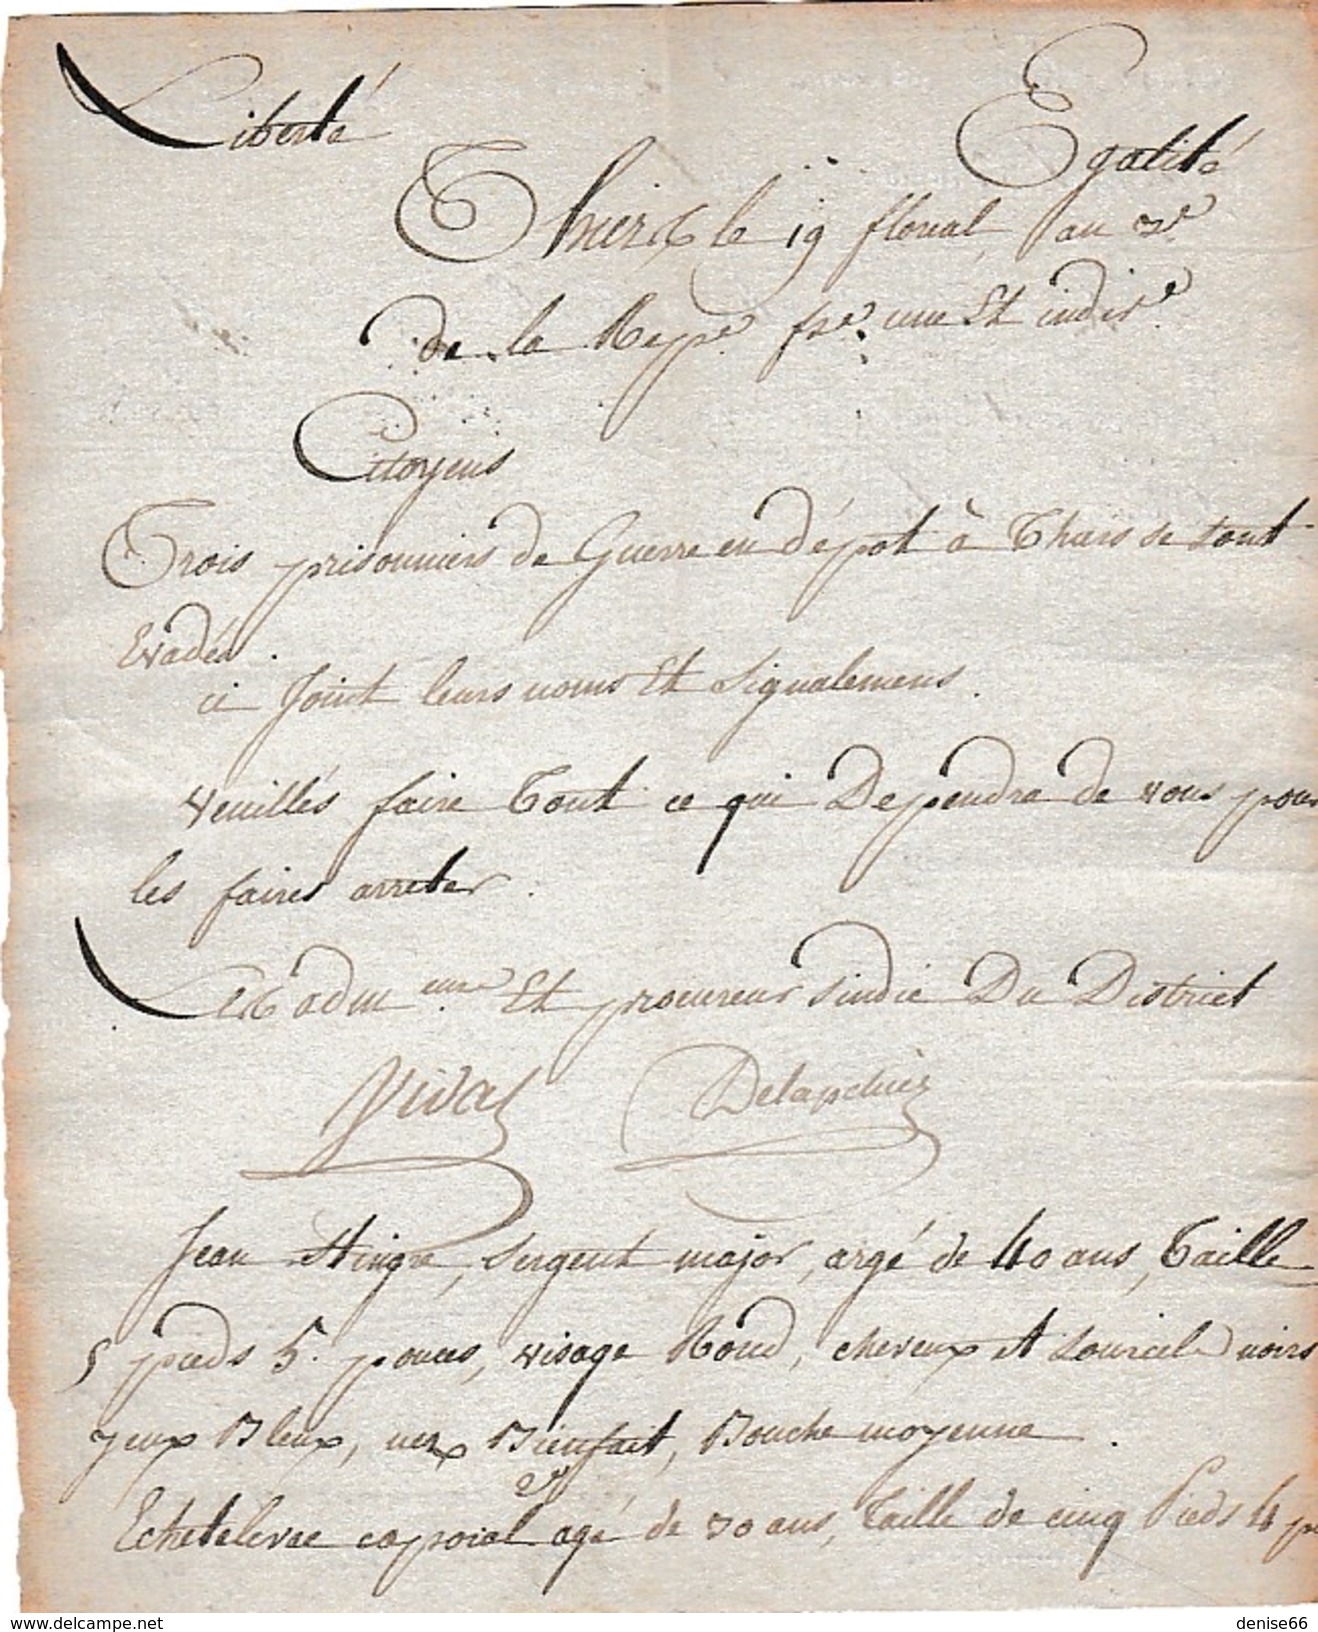 Liberté Egalité
Thierx le 19 floreal, an 2e
de la Repe. fse. une Et indive.
Citoyens
Trois prisonniers de Guerre en dépot à Thiers se sont
Evadés.
ci Joint leurs noms Et Signalemens.
veuillés faire Tout ce qui Dependra de vous pour
les faires arreter.
Les adm eurs. Et procureur Sindic Du District
Vidal Delapchier
Jean Stingre, sergent major, argé de 40 ans, Taille
5 pieds 5. pouces, visage Rond, cheveux et sourcels noirs
yeux Bleux, nex Bienfait, Bouche moyenne.
Echetelevree caporal agé de 30 ans, Taille de cinq Pieds 4 po
delcampe.net
denise66